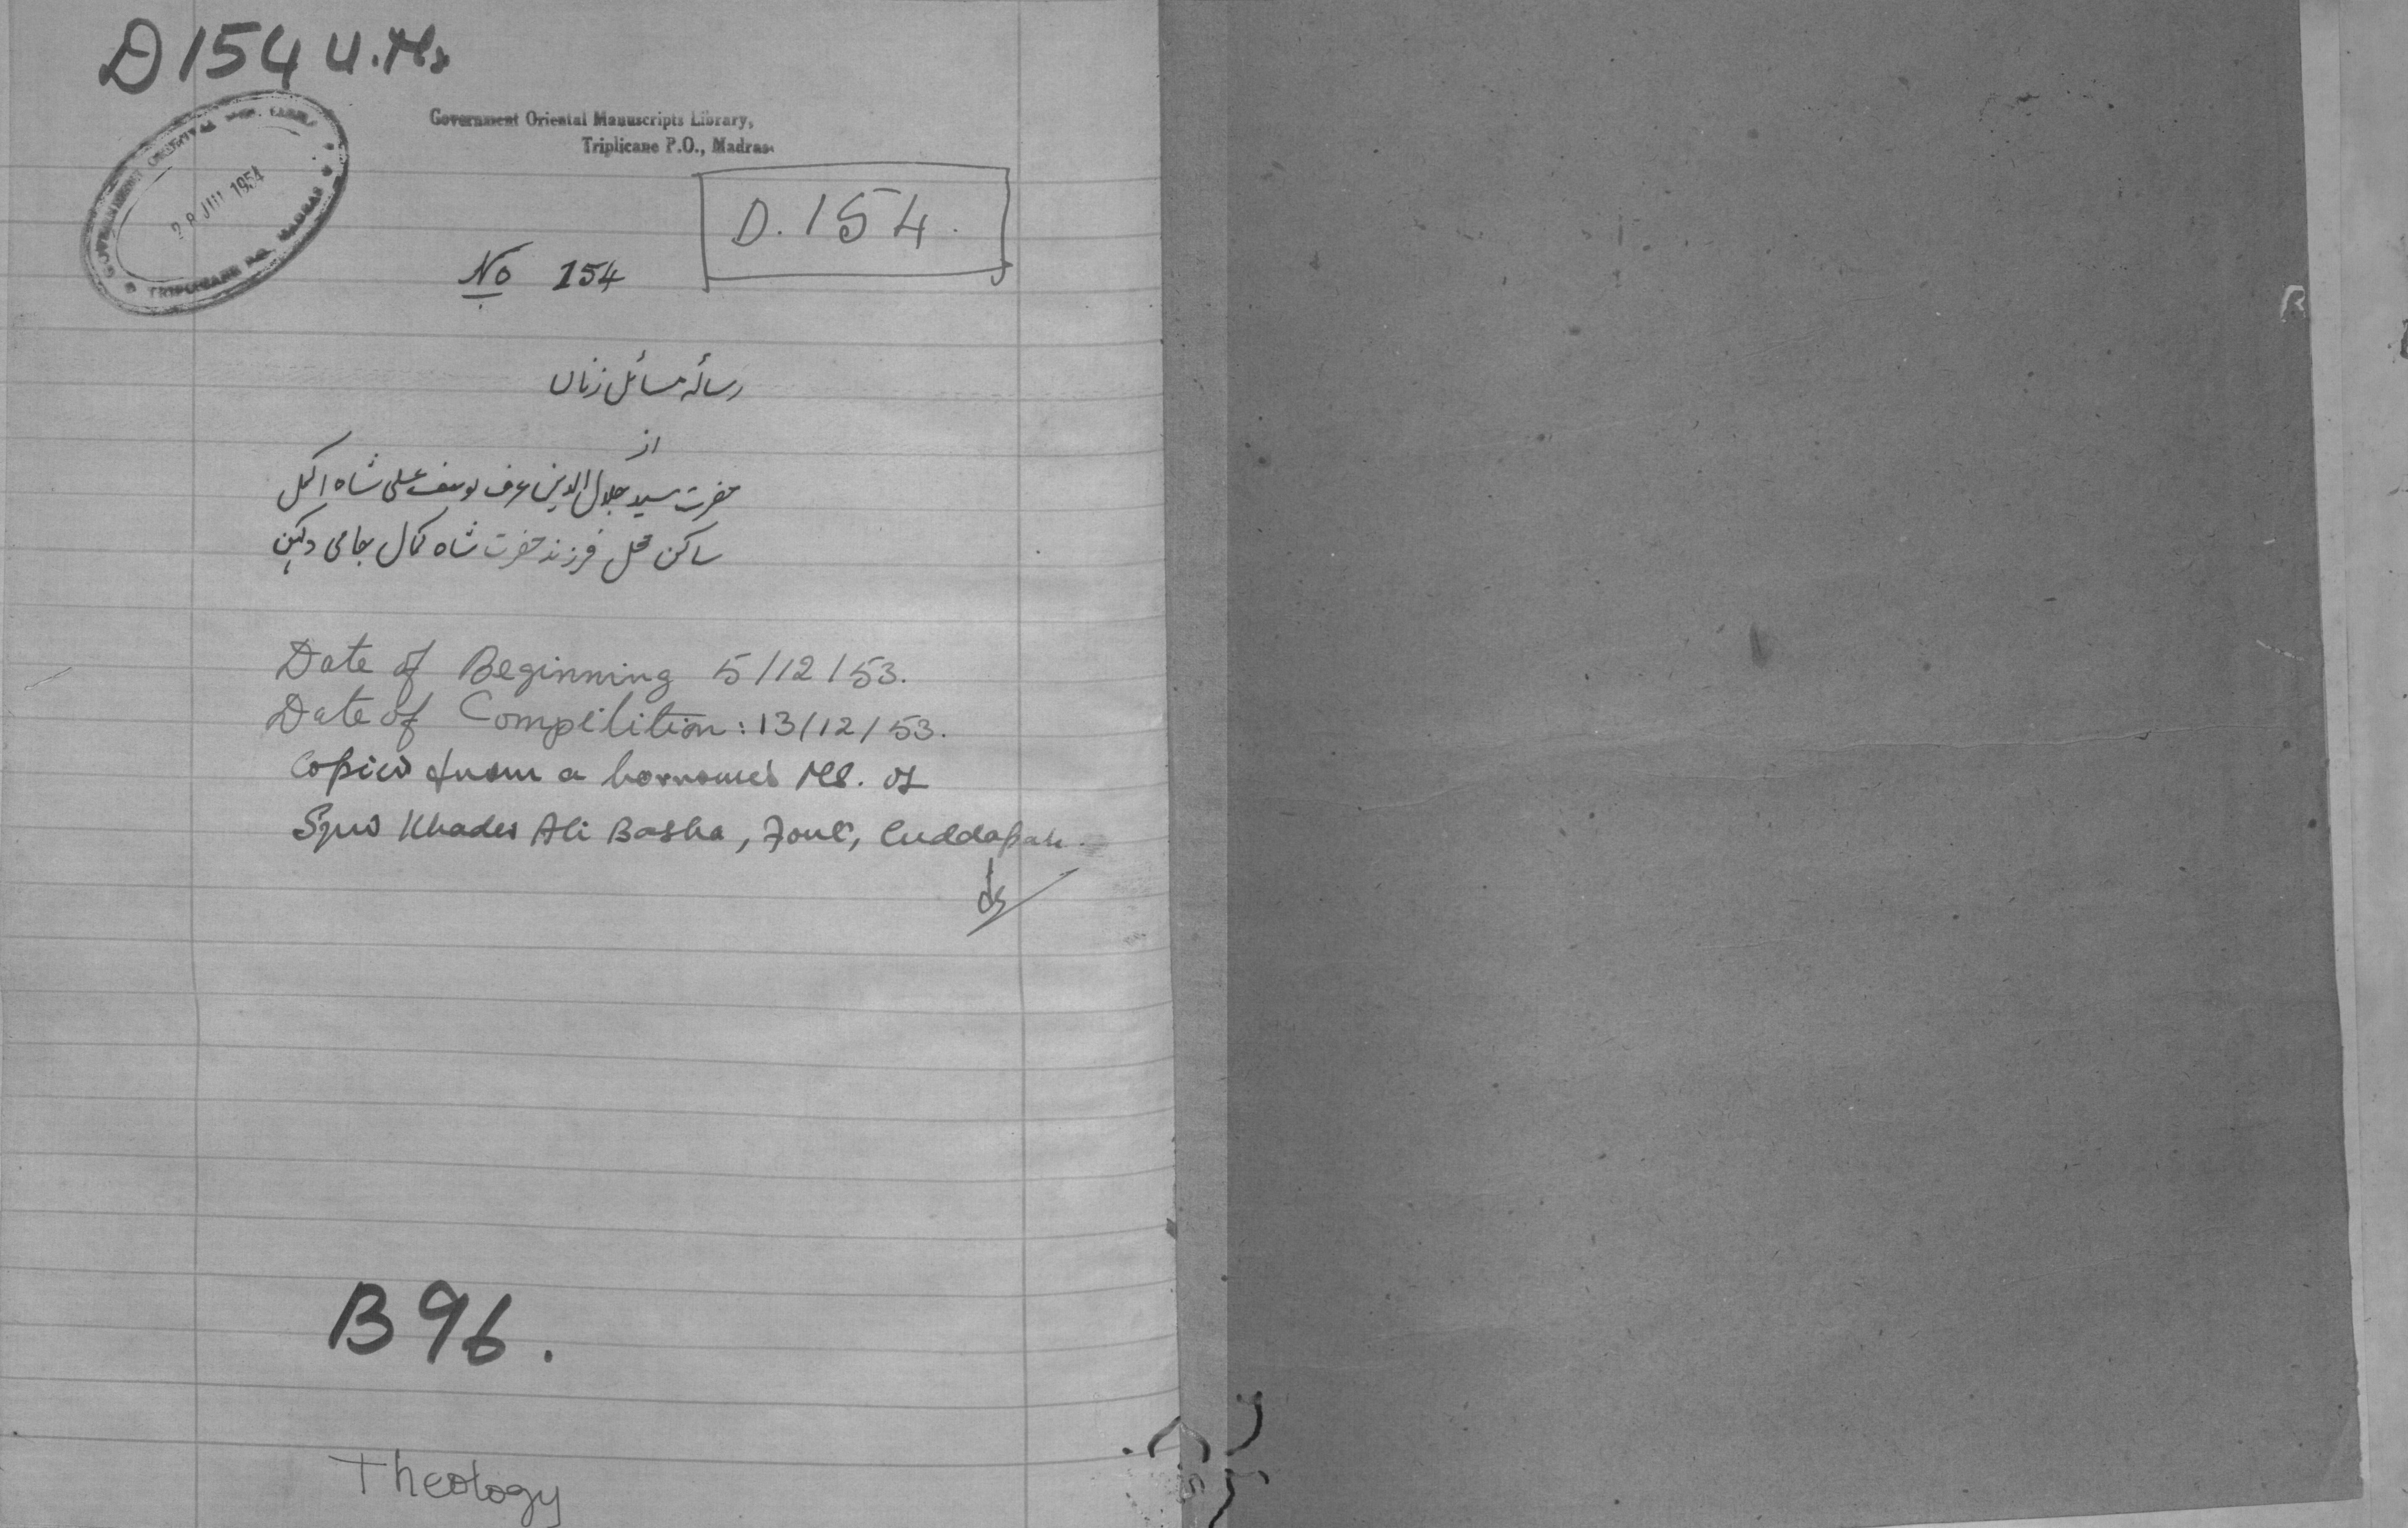 D 154 U.Ms
GOVERNMENT ORIENTAL MSS. LIBRARY
28 JUN 1954
TRIPLICANE P.O. MADRAS
Government Oriental Manuscripts Library,
Triplicane P.O., Madras
D. 154.
No 154
رسالہ مسائل زناں
از
حضرت سید جلال الدین عرف یوسف علی شاہ اکمل
ساکن محل فرزند حضرت شاہ کمال
Date of Beginning 5/12/53.
Date of Compilition: 13/12/53.
Copied from a borrowed MS. of
Syed Khader Ali Basha, Fort, Cuddapah.
B 96.
Theology